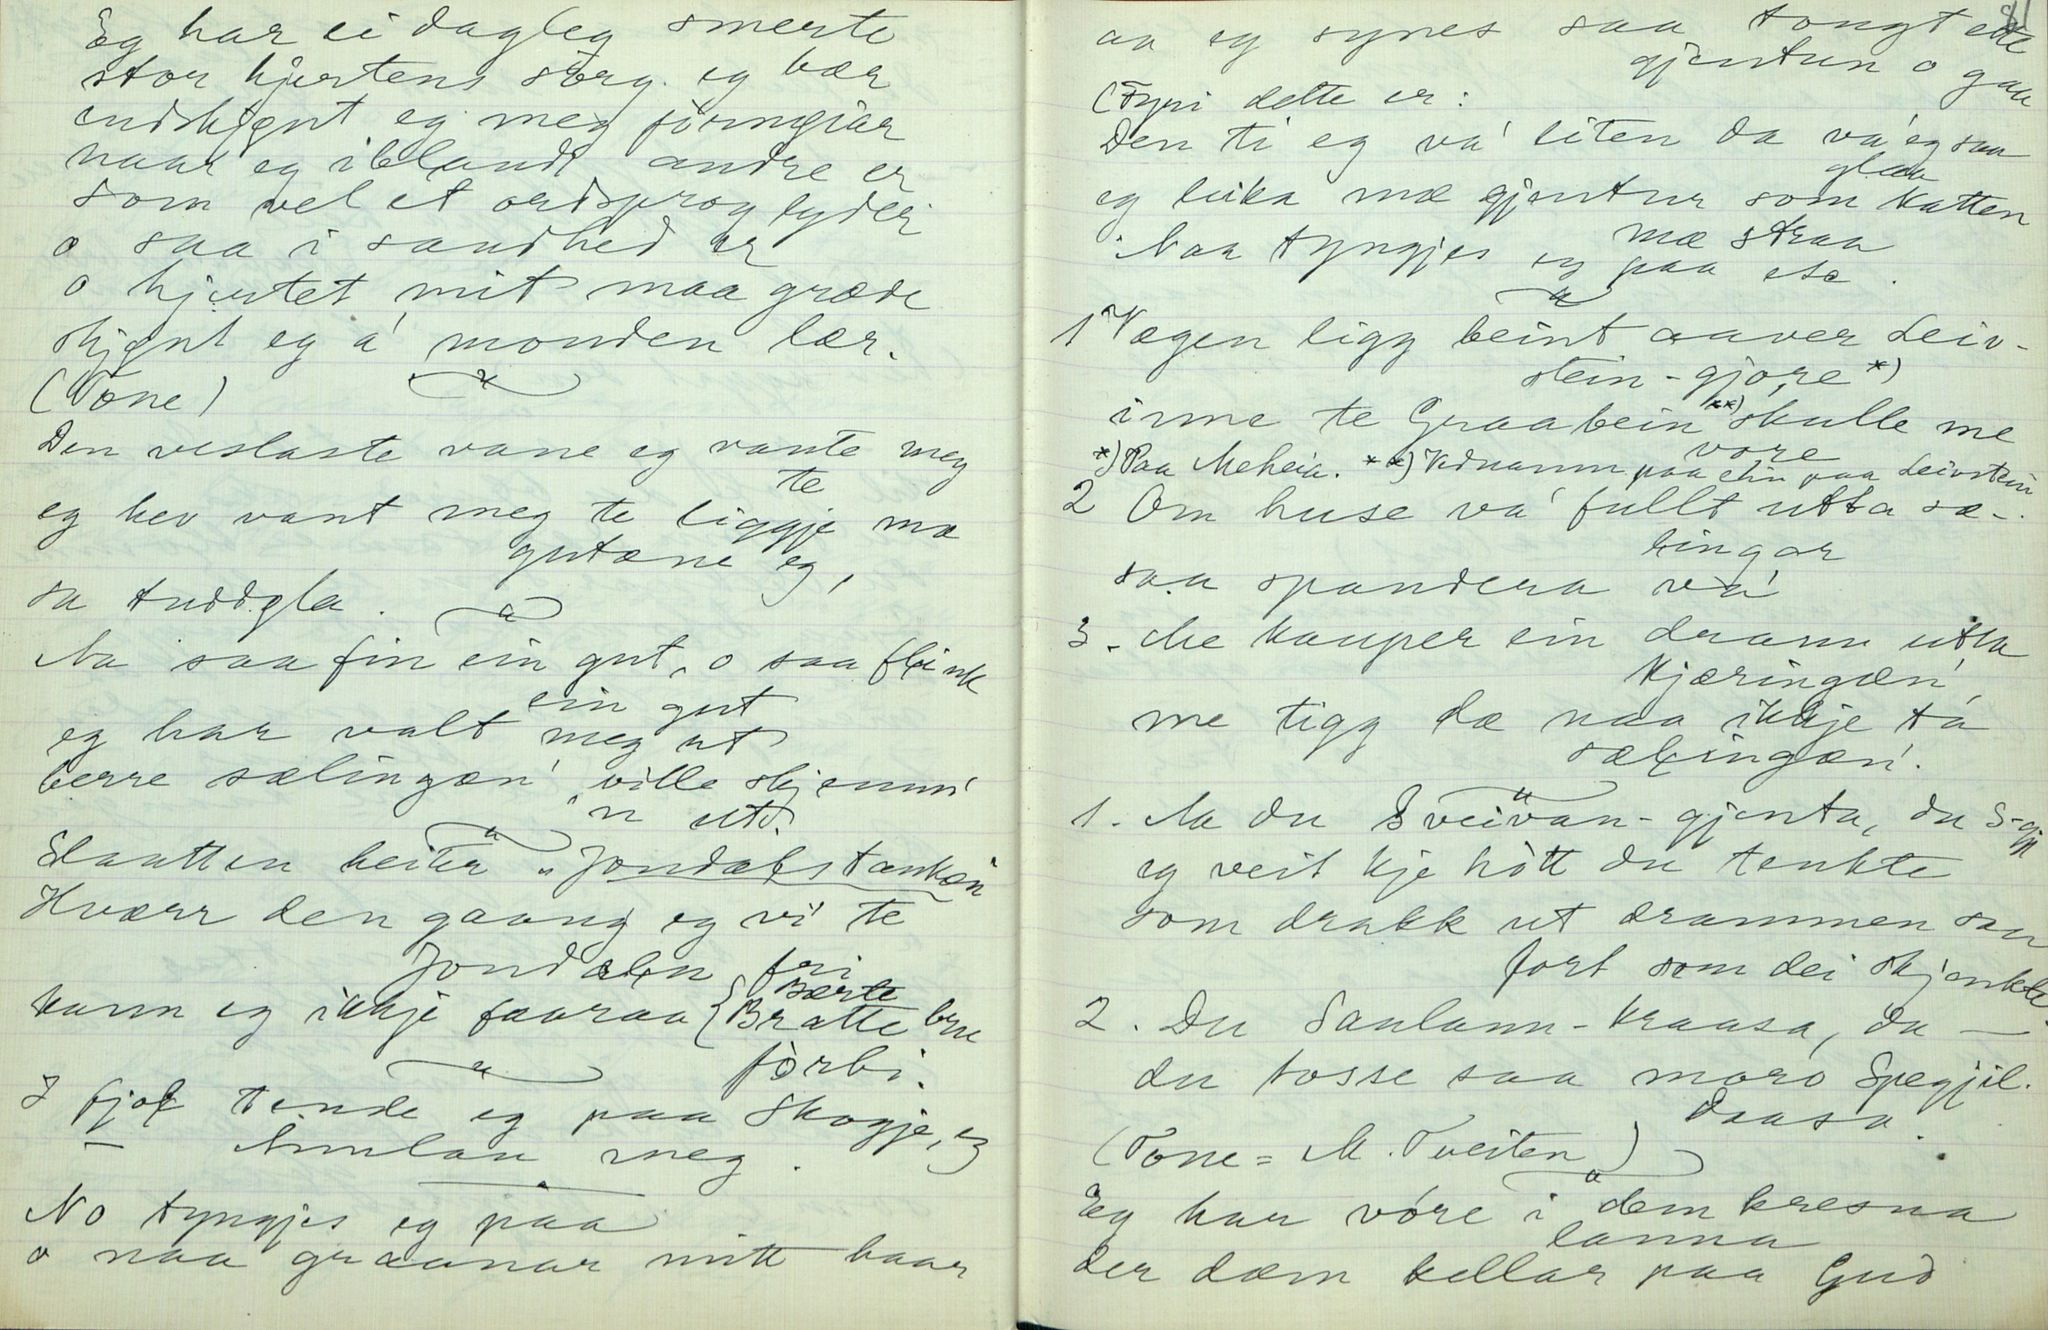 Eg har ei dagleg smerte
stor hjertens sorg eg bær
endskjønt eg meg fornøiar
naar eg iblandt andre er
som vel et ordsprog lyder
o saa i sandhed er
o hjertet mit maa græde
skjønt eg á monden lær.
(Tone)
Den veslaste vane eg vante meg
te
eg hev vant meg te liggje mæ
gutane eg,
sa tuddgla.
Na saa fin ein gut, o saa flink
ein gut
eg har valt meg ut
berre sælingæn' ville skjemm'
'n ut.
Slaatten heiter "Jondalstankæn
Hværr den gaang eg vi te
Jondalen fri
Bærte
kann eg ikkje faaraa {Bratte bru
forbi.
I fjol tende eg paa Skogje, eg
— Aimlau meg.
No tyngjes eg paa
o naa graanar mitt haar
81
aa eg synes saa tongt ette
gjentun o gaa
(Fyri dette er:
Den ti eg va' liten da va' eg saa
glaa
eg leika mæ gjentur som katten
mæ straa
Naa tyngjes eg paa etc.
1 Vægen ligg beint aaver Leiv-
stein-gjore *)
inne te Graabein **) skulle me
vore
*) Paa Meheia. **) Udnamn paa ein paa Leivstein
2 Om huse va' fullt utta sæ-
lingar
saa spandera va'
3. Me kauper ein dramm utta
kjæringæn',
me tigg dæ naa ikkje tá
sælingæn'.
1. Na du Sveivan-gjenta, du S-gj
eg veit kje hött du tenkte
som drakk ut drammen saa
fort som dei skjenkte.
2. Du Saulann-kraasa, du —
du tosse saa moro Spegjil-
daasa.
(Tone = M. Tveiten)
Eg har vóre i dem kresna
lanna
der dæm kallar paa Gud